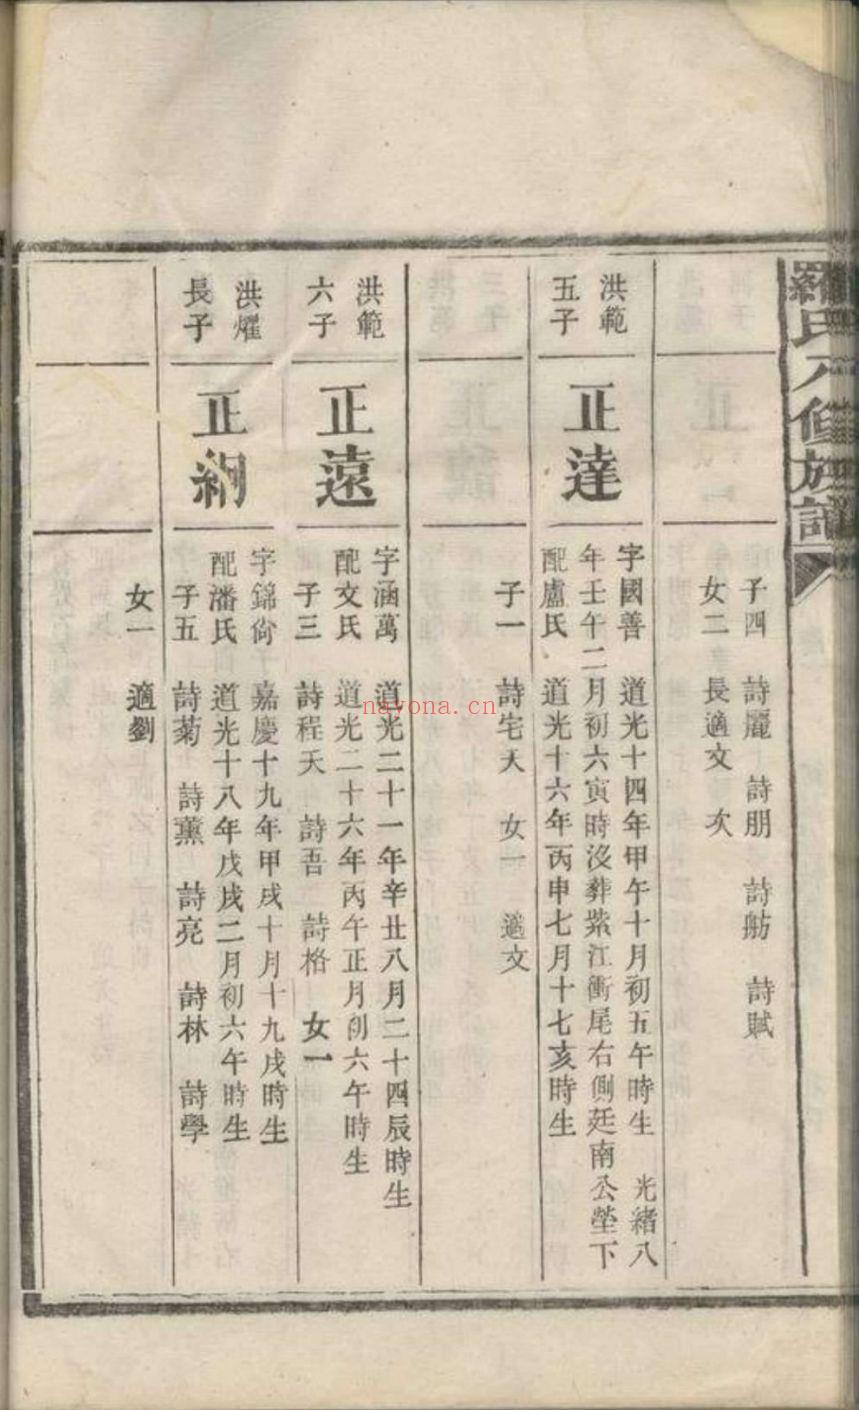 羅氏六修族譜
子四 詩麗 詩朋 詩舫 詩賦
女二 長適文 次
洪範
五子
正達
字國善 道光十四年甲午十月初五午時生 光緒八
年壬午二月初六寅時沒葬紫江衝尾右側廷南公塋下
配盧氏 道光十六年丙申七月十七亥時生
子一 詩宅夭 女一 適文
洪範
六子
正遠
字涵萬 道光二十一年辛丑八月二十四辰時生
配文氏 道光二十六年丙午正月初六午時生
子三 詩程夭 詩吾 詩格 女一
洪燿
長子
正綱
字錦尙 嘉慶十九年甲戌十月十九戌時生
配潘氏 道光十八年戊戌二月初六午時生
子五 詩菊 詩薰 詩亮 詩林 詩學
女一 適劉
nayona.cn